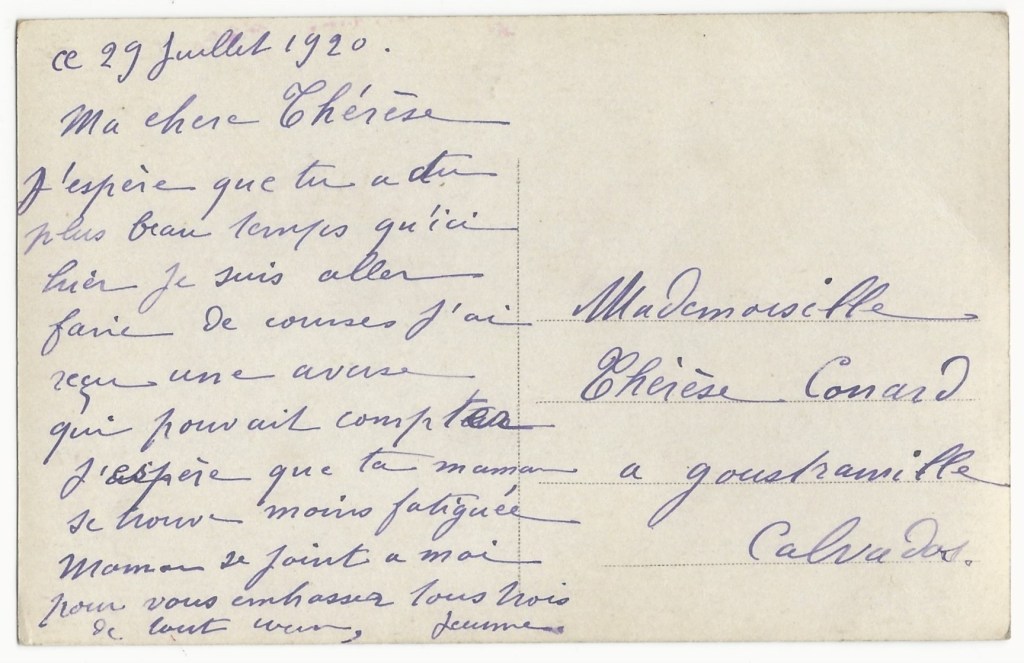 ce 29 Juillet 1920.
Ma chere Thérèse
J'espère que tu a du
plus beau temps qu'ici
hier je suis aller
faire de courses j'ai
reçu une averse
qui pouvait compter
J'espère que ta maman
se trouve moins fatiguée
Maman se joint a moi
pour vous embrasser tous trois
de tout cœur, Jeanne.
Mademoiselle
Thérèse Conard
a goustranville
Calvados.